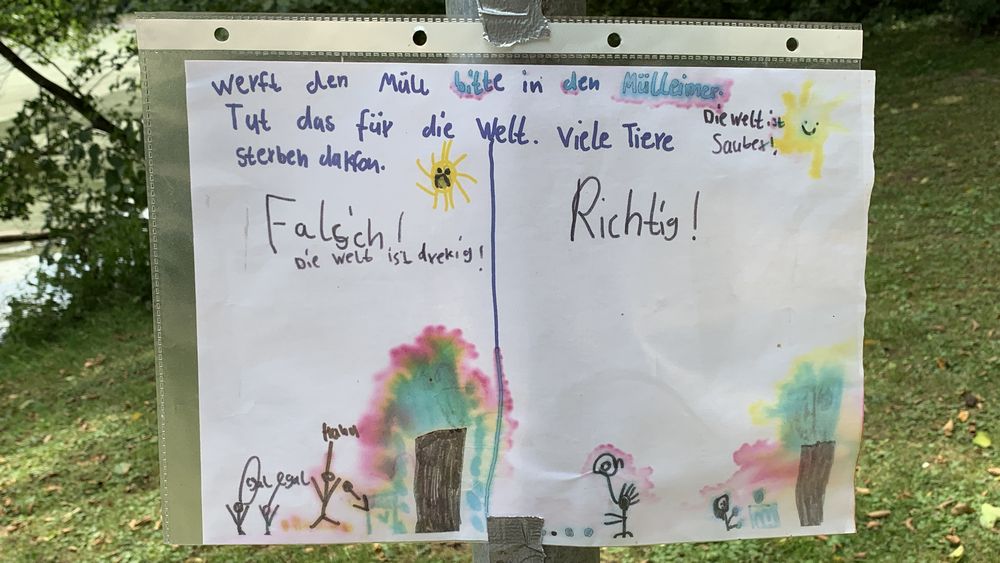 werft den Müll bitte in den Mülleimer.
Tut das für die Welt. Viele Tiere
sterben dafon.
Die welt ist
Sauber!
Falsch!
Die welt ist drekig!
Richtig!
egal